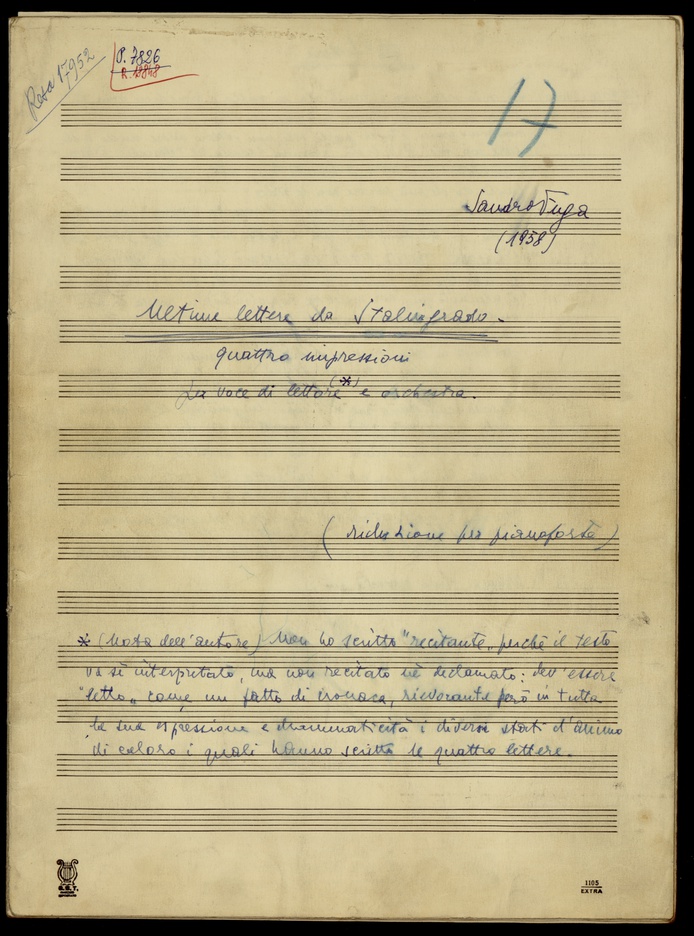 Rosa 17952
P. 7826
R. 12848
17
Sandro Fuga
(1958)
Ultime lettere da Stalingrado -
quattro impressioni
La voce di lettore (*) e orchestra.
(riduzione per pianoforte)
* (Nota dell'autore) Non ho scritto "recitante" perchè il testo
va sì interpretato, ma non recitato nè declamato: dev'essere
"letto" come un fatto di cronaca, rievocante però in tutta
la sua espressione e drammaticità i diversi stati d'animo
di coloro i quali hanno scritto le quattro lettere.
1105
EXTRA